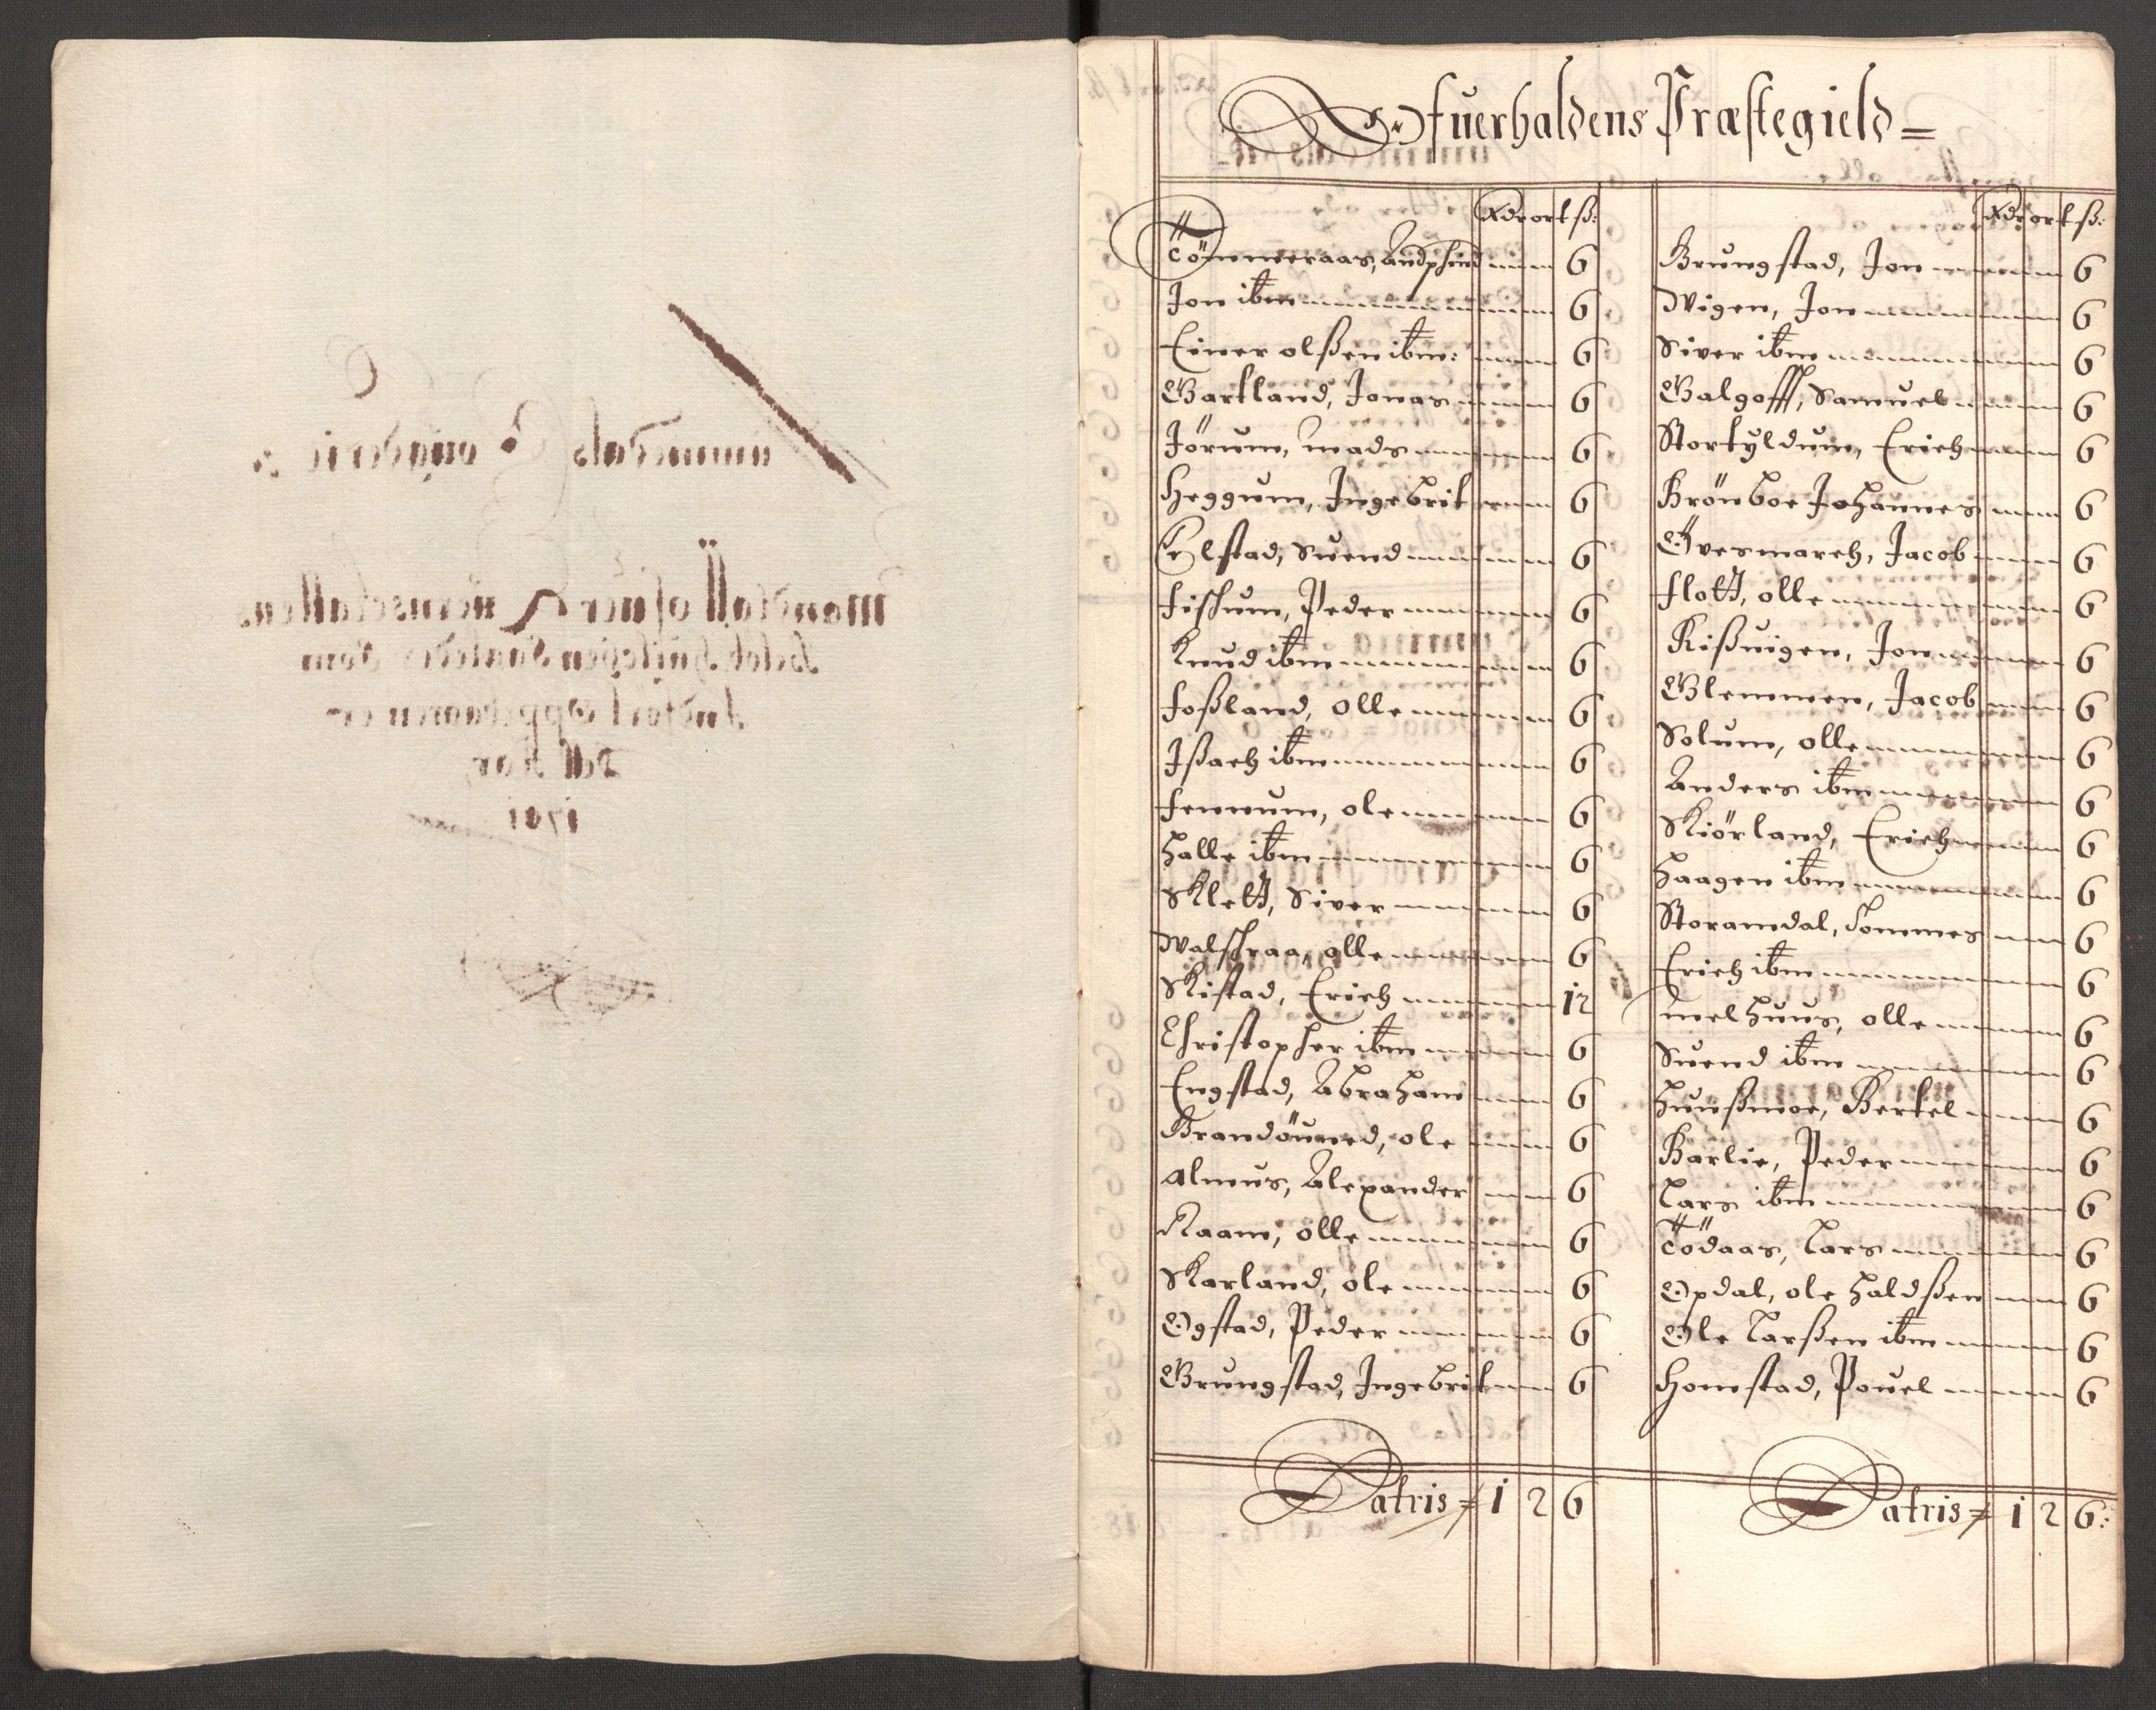 Ofuerhaldens Præstegield =
Rdr ort ß:
Tömmeraas, Andphind 6
Jon ibm 6
Einer olßen ibm: 6
Gartland, Jonas 6
Jörum, mads 6
Heggum, Ingebrit 6
Elstad, Suend 6
Fischum, Peder 6
Knud ibm 6
Foßland, olle 6
Ißach ibm 6
Femum, ole 6
Halle ibm 6
Klett, Siver 6
Walschraa, olle 6
Kistad, Erich 12
Christopher ibm 6
Engstad, Abraham 6
Brandöuned, ole 6
Almus, Alexander 6
Raam, olle 6
Skarland, ole 6
Ogstad, Peder 6
Grungstad, Ingebrit 6
Latris = 1 2 6
Rdr ort ß:
Grungstad, Jon 6
Wigen, Jon 6
Siver ibm 6
Galgofff, Samuel 6
Stortyldum, Erich 6
Brönboe Johannes 6
Öyesmarch, Jacob 6
Flott, olle 6
Rißuigen, Jon 6
Glemmen, Jacob 6
Solum, olle 6
Anders ibm 6
Skiörland, Erich 6
Haagen ibm 6
Storamdal, Tommes 6
Erich ibm 6
melhuus, olle 6
Suend ibm 6
Hunßmoe, Bertel 6
Barlie, Peder 6
Lars ibm 6
Tödaas, Lars 6
Opdal, ole Haldßen 6
Ole Larßen ibm 6
Homstad, Pouel 6
Latris = 1 2 6: